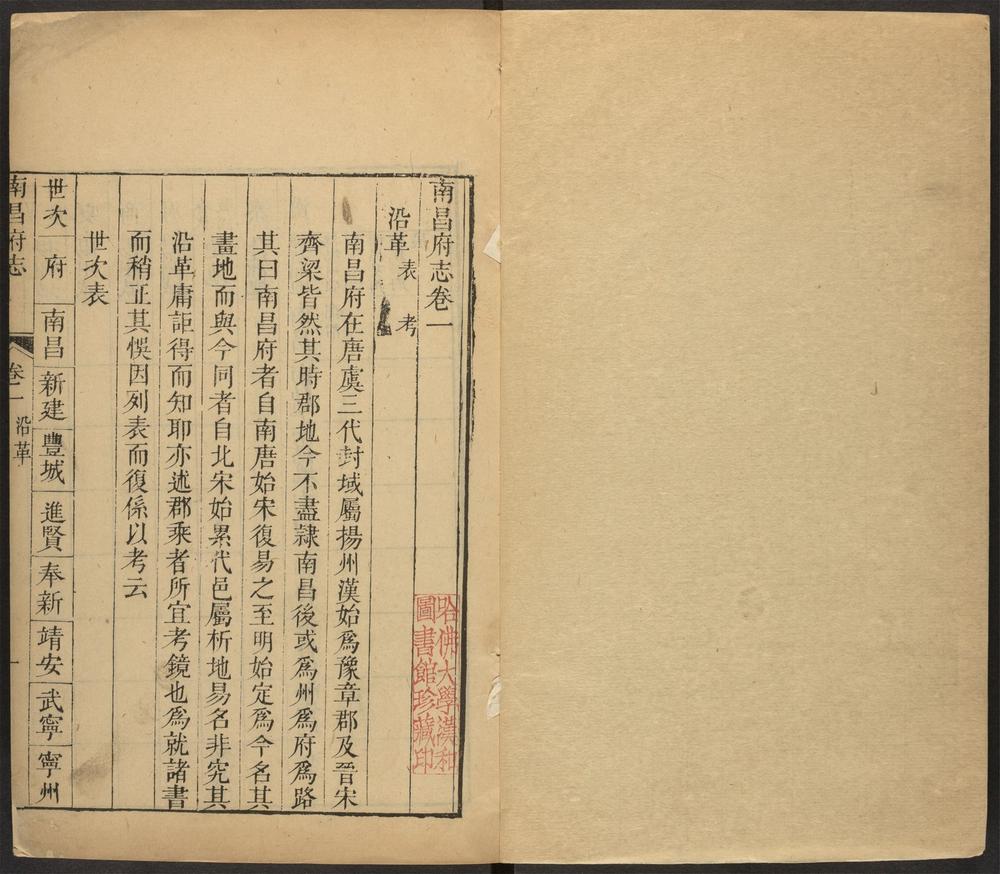 南昌府志卷一
沿革 表 考
南昌府在唐虞三代封域屬揚州漢始爲豫章郡及晉宋
齊梁皆然其時郡地今不盡隸南昌後或爲州爲府爲路
其曰南昌府者自南唐始宋復易之至明始定爲今名其
畫地而與今同者自北宋始累代邑屬析地易名非究其
沿革庸詎得而知耶亦述郡乘者所宜考鏡也爲就諸書
而稍正其悞因列表而復係以考云
世次表
世次 府 南昌 新建 豐城 進賢 奉新 靖安 武寧 寧州
南昌府志 卷一 沿革 一
哈佛大學漢和
圖書館珍藏印